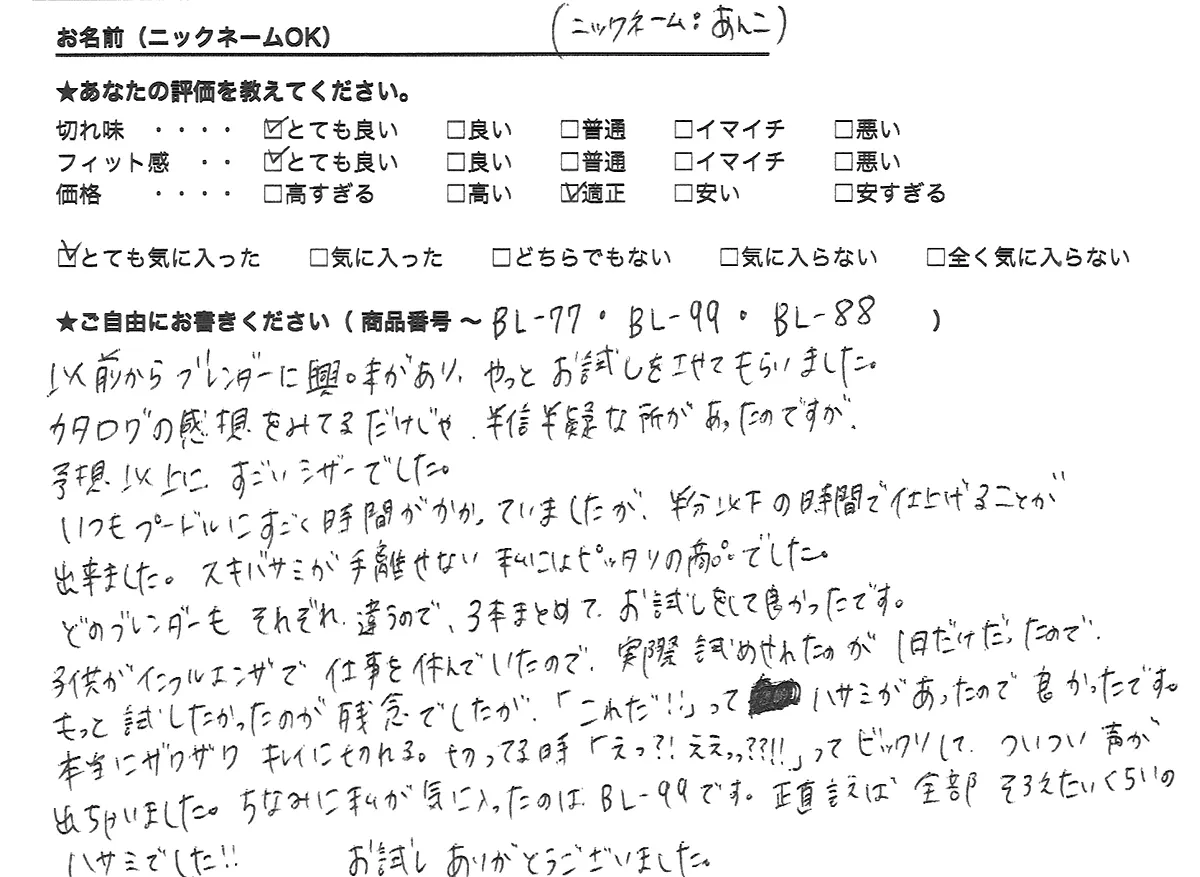 お名前（ニックネームOK）　（ニックネーム：あんこ）
★あなたの評価を教えてください。
切れ味　・・・・　☑とても良い　□良い　□普通　□イマイチ　□悪い
フィット感　・・　☑とても良い　□良い　□普通　□イマイチ　□悪い
価格　・・・・　□高すぎる　□高い　☑適正　□安い　□安すぎる
☑とても気に入った　□気に入った　□どちらでもない　□気に入らない　□全く気に入らない
★ご自由にお書きください（商品番号～BL-77・BL-99・BL-88　）
以前からブレンダーに興味があり、やっとお試しをさせてもらいました。
カタログの感想をみてるだけじゃ、半信半疑な所があったのですが、
予想以上に、すごいシザーでした。
いつもプードルにすごく時間がかかっていましたが、半分以下の時間で仕上げることが
出来ました。スキバサミが手離せない私にはピッタリの商品でした。
どのブレンダーもそれぞれ違うので、3本まとめてお試しをして良かったです。
子供がインフルエンザで仕事を休んでいたので、実際試めせれたのが1日だけだったので、
もっと試したかったのが残念でしたが、「これだ!!」ってハサミがあったので良かったです。
本当にザクザクキレイに切れる。切ってる時「えっ?!ええっっ??!!」ってビックリして、ついつい声が
出ちゃいました。ちなみに私が気に入ったのはBL-99です。正直言えば全部そろえたいくらいの
ハサミでした!!　お試しありがとうございました。